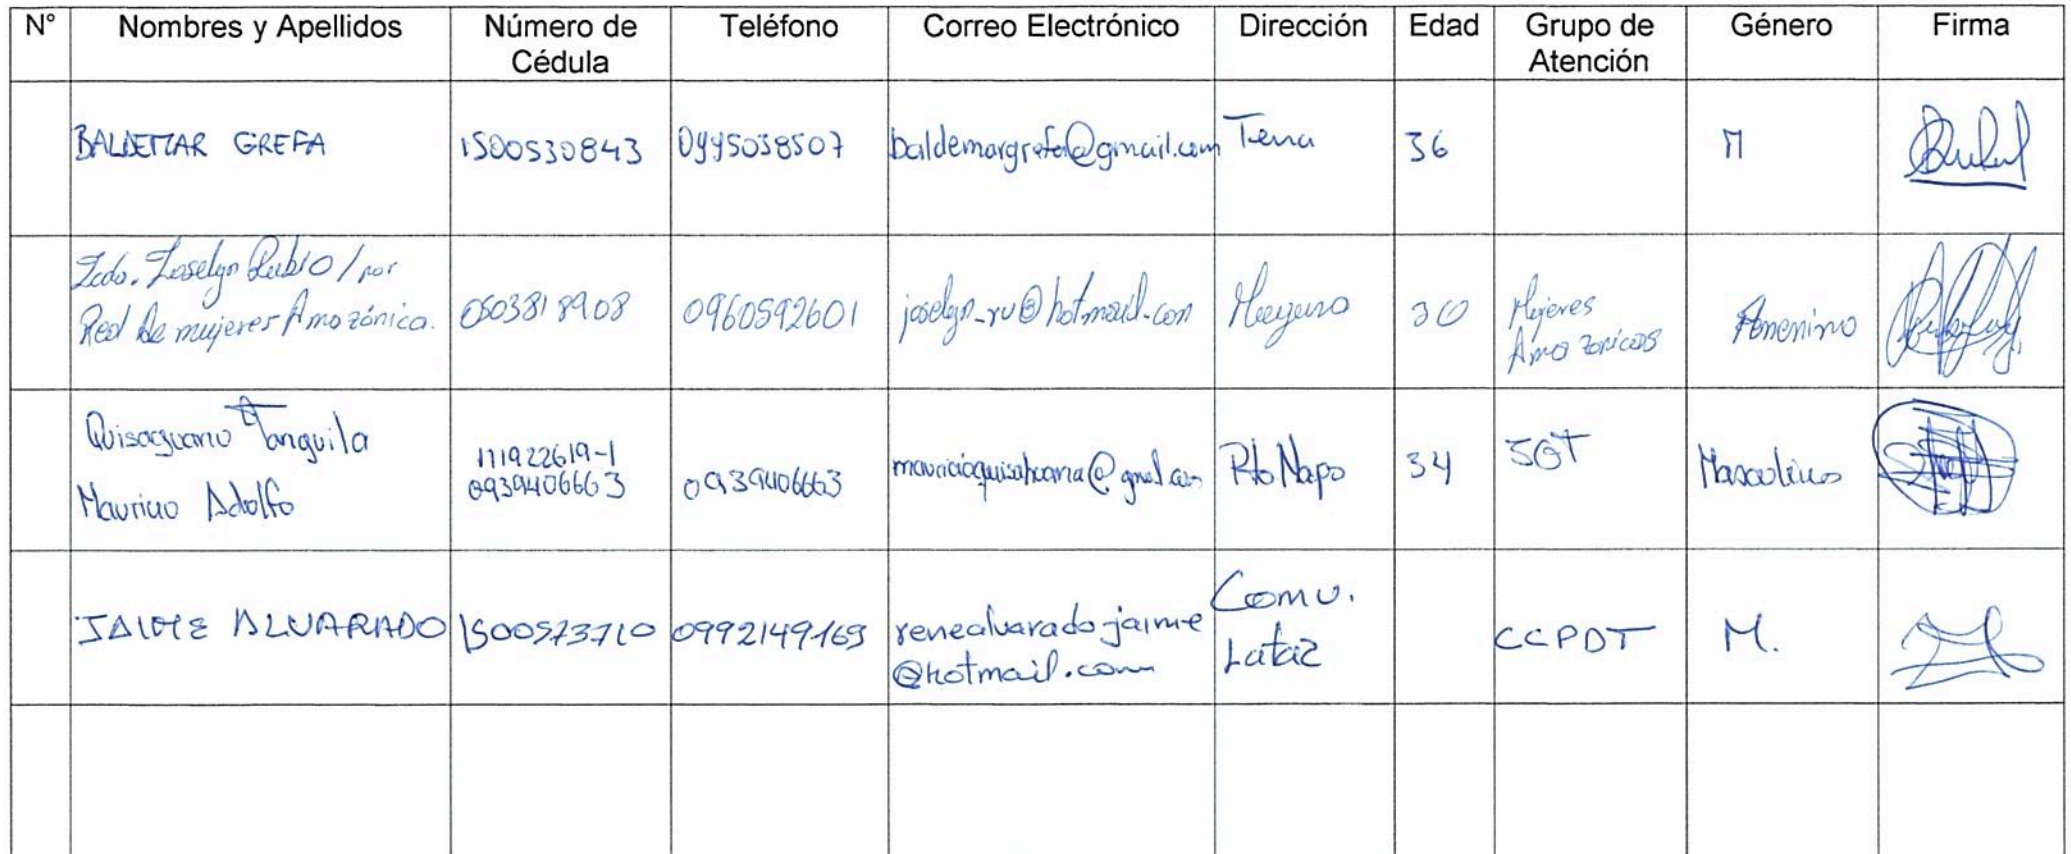 N° Nombres y Apellidos Número de Cédula Teléfono Correo Electrónico Dirección Edad Grupo de Atención Género Firma
BALDEMAR GREFA 1500530843 baldemargrefa@gmail.com Tena 36 M
Joselyn Rubio / por
Red de mujeres Amazónica. 0503818908 0960592601 joselyn_ru@hotmail.com 30 Mujeres
Amazonicas Femenino
Tanguila
Mauricio Adolfo
0939406663 0939406663 Pto Napo 34 Masculino
JAIME ALVARADO 1500573710 0992149169 renealvaradojaime
@hotmail.com Comu.
Lataz CCPDT M.